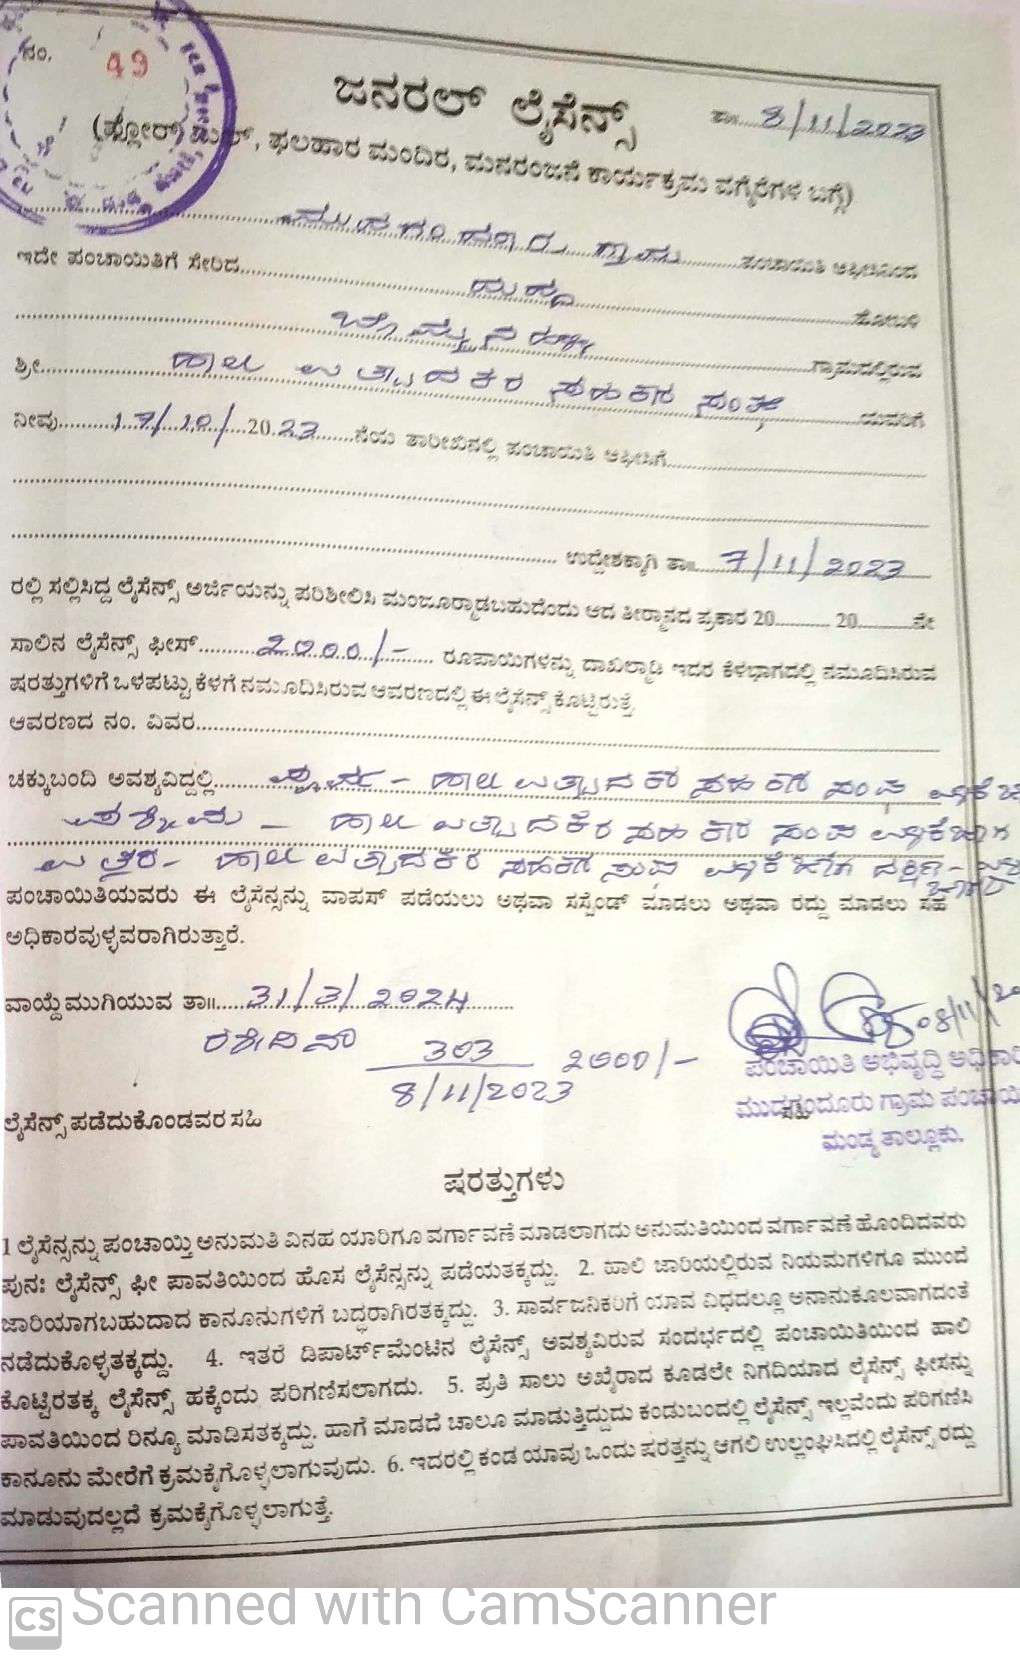 ನಂ. 49
ಜನರಲ್ ಲೈಸೆನ್ಸ್
ತಾ॥.....8/11/2023
(ಫ್ಲೋರ್) ಮಿಲ್, ಫಲಹಾರ ಮಂದಿರ, ಮನರಂಜನೆ ಕಾರ್ಯಕ್ರಮ ವಗೈರೆಗಳ ಬಗ್ಗೆ)
ಮುದಗಂದೂರು ಗ್ರಾಮ ಪಂಚಾಯಿತಿ ಆಫೀಸಿನಿಂದ
ಇದೇ ಪಂಚಾಯಿತಿಗೆ ಸೇರಿದ
ಹೋಬಳಿ
ಗ್ರಾಮದಲ್ಲಿರುವ
ಶ್ರೀ ಹಾಲು ಉತ್ಪಾದಕರ ಸಹಕಾರ ಸಂಘ ಯವರಿಗೆ
ನೀವು 17/10/2023 ನೆಯ ತಾರೀಖಿನಲ್ಲಿ ಪಂಚಾಯಿತಿ ಆಫೀಸಿಗೆ
ಉದ್ದೇಶಕ್ಕಾಗಿ ತಾ॥ 7/11/2023
ರಲ್ಲಿ ಸಲ್ಲಿಸಿದ್ದ ಲೈಸೆನ್ಸ್ ಅರ್ಜಿಯನ್ನು ಪರಿಶೀಲಿಸಿ ಮಂಜೂರ್‍ಮಾಡಬಹುದೆಂದು ಆದ ತೀರ್ಮಾನದ ಪ್ರಕಾರ 20........... 20...........ನೇ
ಸಾಲಿನ ಲೈಸೆನ್ಸ್ ಫೀಸ್ 2000/- ರೂಪಾಯಿಗಳನ್ನು ದಾಖಲ್ಮಾಡಿ ಇದರ ಕೆಳಭಾಗದಲ್ಲಿ ನಮೂದಿಸಿರುವ
ಷರತ್ತುಗಳಿಗೆ ಒಳಪಟ್ಟು ಕೆಳಗೆ ನಮೂದಿಸಿರುವ ಆವರಣದಲ್ಲಿ ಈ ಲೈಸೆನ್ಸ್ ಕೊಟ್ಟಿರುತ್ತೆ
ಆವರಣದ ನಂ. ವಿವರ
ಚಕ್ಕುಬಂದಿ ಅವಶ್ಯವಿದ್ದಲ್ಲಿ ಪೂರ್ವ - ಹಾಲು ಉತ್ಪಾದಕರ ಸಹಕಾರ ಸಂಘ
ಪಶ್ಚಿಮ - ಹಾಲು ಉತ್ಪಾದಕರ ಸಹಕಾರ ಸಂಘ
ಉತ್ತರ - ಹಾಲು ಉತ್ಪಾದಕರ ಸಹಕಾರ ಸಂಘ ದಕ್ಷಿಣ -
ಪಂಚಾಯಿತಿಯವರು ಈ ಲೈಸೆನ್ಸನ್ನು ವಾಪಸ್ ಪಡೆಯಲು ಅಥವಾ ಸಸ್ಪೆಂಡ್ ಮಾಡಲು ಅಥವಾ ರದ್ದು ಮಾಡಲು ಸಹ
ಅಧಿಕಾರವುಳ್ಳವರಾಗಿರುತ್ತಾರೆ.
ವಾಯ್ದೆ ಮುಗಿಯುವ ತಾ॥ 31/3/2024
08/11/20
ರಶೀದಿ ನಂ 303 2000/-
8/11/2023
ಪಂಚಾಯಿತಿ ಅಭಿವೃದ್ಧಿ ಅಧಿಕಾರಿ
ಮುದಗಂದೂರು ಗ್ರಾಮ ಪಂಚಾಯಿ
ಮಂಡ್ಯ ತಾಲ್ಲೂಕು.
ಲೈಸೆನ್ಸ್ ಪಡೆದುಕೊಂಡವರ ಸಹಿ
ಷರತ್ತುಗಳು
1 ಲೈಸೆನ್ಸನ್ನು ಪಂಚಾಯ್ತಿ ಅನುಮತಿ ವಿನಹ ಯಾರಿಗೂ ವರ್ಗಾವಣೆ ಮಾಡಲಾಗದು ಅನುಮತಿಯಿಂದ ವರ್ಗಾವಣೆ ಹೊಂದಿದವರು
ಪುನಃ ಲೈಸೆನ್ಸ್ ಫೀ ಪಾವತಿಯಿಂದ ಹೊಸ ಲೈಸೆನ್ಸನ್ನು ಪಡೆಯತಕ್ಕದ್ದು. 2. ಹಾಲಿ ಜಾರಿಯಲ್ಲಿರುವ ನಿಯಮಗಳಿಗೂ ಮುಂದೆ
ಜಾರಿಯಾಗಬಹುದಾದ ಕಾನೂನುಗಳಿಗೆ ಬದ್ಧರಾಗಿರತಕ್ಕದ್ದು. 3. ಸಾರ್ವಜನಿಕರಿಗೆ ಯಾವ ವಿಧದಲ್ಲೂ ಅನಾನುಕೂಲವಾಗದಂತೆ
ನಡೆದುಕೊಳ್ಳತಕ್ಕದ್ದು. 4. ಇತರೆ ಡಿಪಾರ್ಟ್‌ಮೆಂಟಿನ ಲೈಸೆನ್ಸ್ ಅವಶ್ಯವಿರುವ ಸಂದರ್ಭದಲ್ಲಿ ಪಂಚಾಯಿತಿಯಿಂದ ಹಾಲಿ
ಕೊಟ್ಟಿರತಕ್ಕ ಲೈಸೆನ್ಸ್ ಹಕ್ಕೆಂದು ಪರಿಗಣಿಸಲಾಗದು. 5. ಪ್ರತಿ ಸಾಲು ಅಖೈರಾದ ಕೂಡಲೇ ನಿಗದಿಯಾದ ಲೈಸೆನ್ಸ್ ಫೀಸನ್ನು
ಪಾವತಿಯಿಂದ ರಿನ್ಯೂ ಮಾಡಿಸತಕ್ಕದ್ದು. ಹಾಗೆ ಮಾಡದೆ ಚಾಲೂ ಮಾಡುತ್ತಿದ್ದುದು ಕಂಡುಬಂದಲ್ಲಿ ಲೈಸೆನ್ಸ್ ಇಲ್ಲವೆಂದು ಪರಿಗಣಿಸಿ
ಕಾನೂನು ಮೇರೆಗೆ ಕ್ರಮಕೈಗೊಳ್ಳಲಾಗುವುದು. 6. ಇದರಲ್ಲಿ ಕಂಡ ಯಾವು ಒಂದು ಷರತ್ತನ್ನು ಆಗಲಿ ಉಲ್ಲಂಘಿಸಿದಲ್ಲಿ ಲೈಸೆನ್ಸ್ ರದ್ದು
ಮಾಡುವುದಲ್ಲದೆ ಕ್ರಮಕೈಗೊಳ್ಳಲಾಗುತ್ತೆ.
CS Scanned with CamScanner